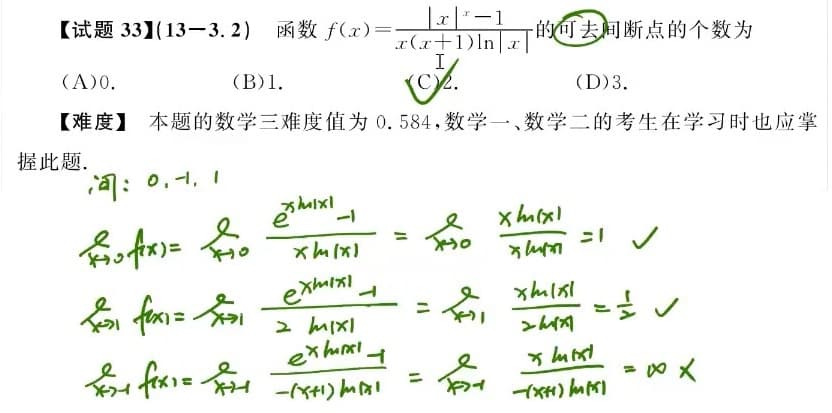 【试题 33】(13-3.2) 函数 f(x)=\frac{|x|^x-1}{x(x+1)\ln|x|}的可去间断点的个数为
(A)0. (B)1. (C)2. (D)3.
【难度】 本题的数学三难度值为 0.584,数学一、数学二的考生在学习时也应掌
握此题.
间: 0, -1, 1
\lim_{x→0} f(x) = \lim_{x→0} \frac{e^{x\ln|x|}-1}{x\ln|x|} = \lim_{x→0} \frac{x\ln|x|}{x\ln|x|} = 1 ✓
\lim_{x→1} f(x) = \lim_{x→1} \frac{e^{x\ln|x|}-1}{2\ln|x|} = \lim_{x→1} \frac{x\ln|x|}{2\ln|x|} = \frac{1}{2} ✓
\lim_{x→-1} f(x) = \lim_{x→-1} \frac{e^{x\ln|x|}-1}{-(x+1)\ln|x|} = \lim_{x→-1} \frac{x\ln|x|}{-(x+1)\ln|x|} = ∞ ×